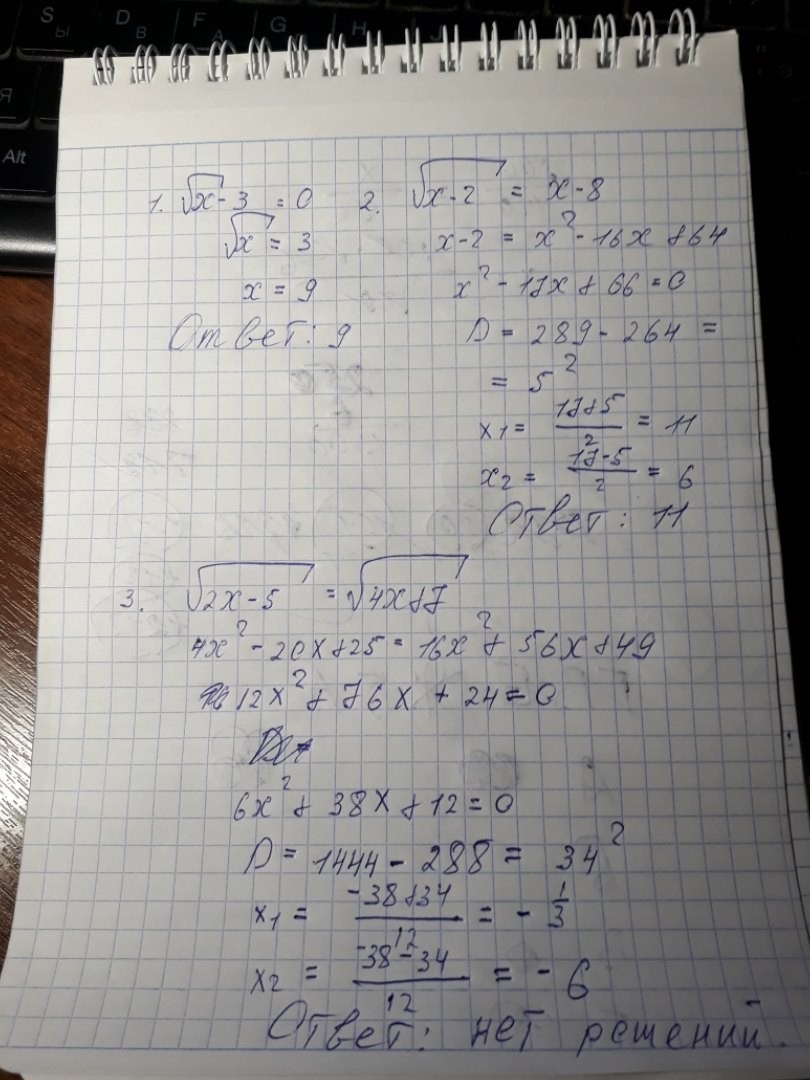 S Ы
D В
F А
G
Я
Alt
1. √x - 3 = 0
√x = 3
x = 9
Ответ: 9
2. √x-2 = x-8
x-2 = x² - 16x + 64
x² - 17x + 66 = 0
D = 289 - 264 =
= 5²
x1 = (17+5)/2 = 11
x2 = (17-5)/2 = 6
Ответ: 11
3. √2x-5 = √4x+7
4x² - 20x + 25 = 16x² + 56x + 49
12x² + 76x + 24 = 0
6x² + 38x + 12 = 0
D = 1444 - 288 = 34²
x1 = (-38+34)/12 = - 1/3
x2 = (-38-34)/12 = - 6
Ответ: нет решений.